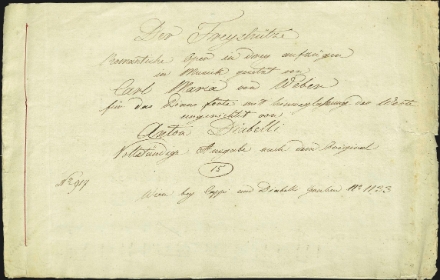 Der Freyschütze
Romantische Oper in drey Aufzügen
in Musik gesetzt von
Carl Maria von Weber
für das Piano forte mit Hinweglassung der Worte
eingerichtet von
Anton Diabelli
Vollständige Ausgabe nach dem Original
15
Wien bey Cappi und Diabelli Graben Nº 1133